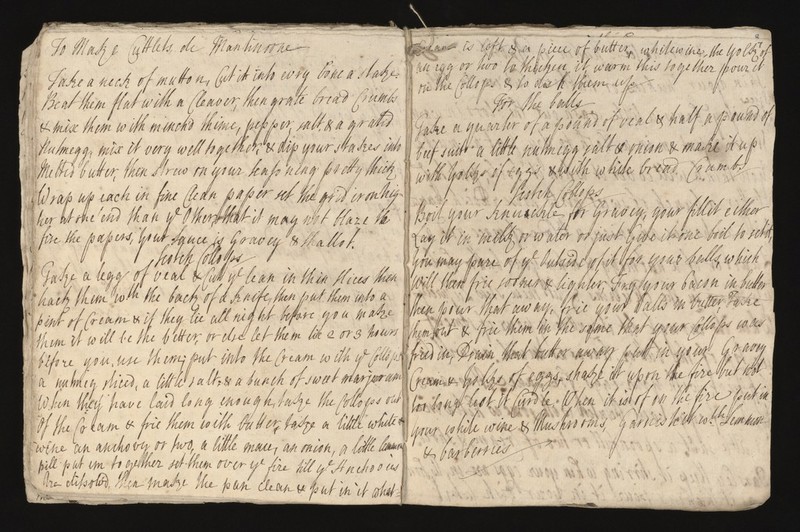 To Make Cuttlets de Mantinoone
Take a neck of mutton, Cut it into evry bone a stake
Beat them flat with a Cleaver, then grate bread Crumbs
& mix them with mincd thime, pepper, salt, & a grated
Nutmegg, mix it very well together & dip your stakes into
Melted butter, then strew on your seasoning pretty thick
Wrap up each in fine Clean paper set the gridiron hig-
her at one end than ye Other that it may not blaze to
fire the papers, Your sauce is Gravey & shallot.
Scotch Collops
Take a legg of veal & Cut ye lean in thin slices then
hack them wth the back of a knife, then put them into a
pint of Cream & if they lie all night before you make
them it will be the better, or else let them lie 2 or 3 hours
before you use them, put into the Cream with ye Collops
a nutmeg sliced, a little salt, & a bunch of sweet marjoram
When they have laid long enough, take the Collops out
Of the Cream & frie them with butter, take a little white
wine an anchovy or two, a little mace, an onion, a little lemmon
pill put em together set them over ye fire till ye Anchoves
Are disolvd, then make the pan clean & put in it what
Cream is left & a piece of butter, white wine, the Yolks of
an egg or two to thicken it, warm this together pour it
on the Collops & so dish them up
For the balls
Take a quarter of a pound of veal & half a pound of
beef suit a little nutmegg salt & onion & make it up
with Yolks of eggs, & with white bread Crumbs
Scotch Collops
Boil your Knuckle for Gravey, your fillit either
Lay it in milk or water or just Give it one boil to set it,
you may pare of ye outside of it for your balls which
Will then frie sooner & lighter, Fry your bacon in butter
then pour that away, frie your balls in butter take
them out & frie them in the same that your Collops was
fried in, Drain that butter away put in your Gravey
Cream & Yolks of eggs, shake it upon the fire but not
too long lest it Curdle. When it is of on the fire put in
your white wine & Mushrooms, Garnish it wth Lemmon
& barberries